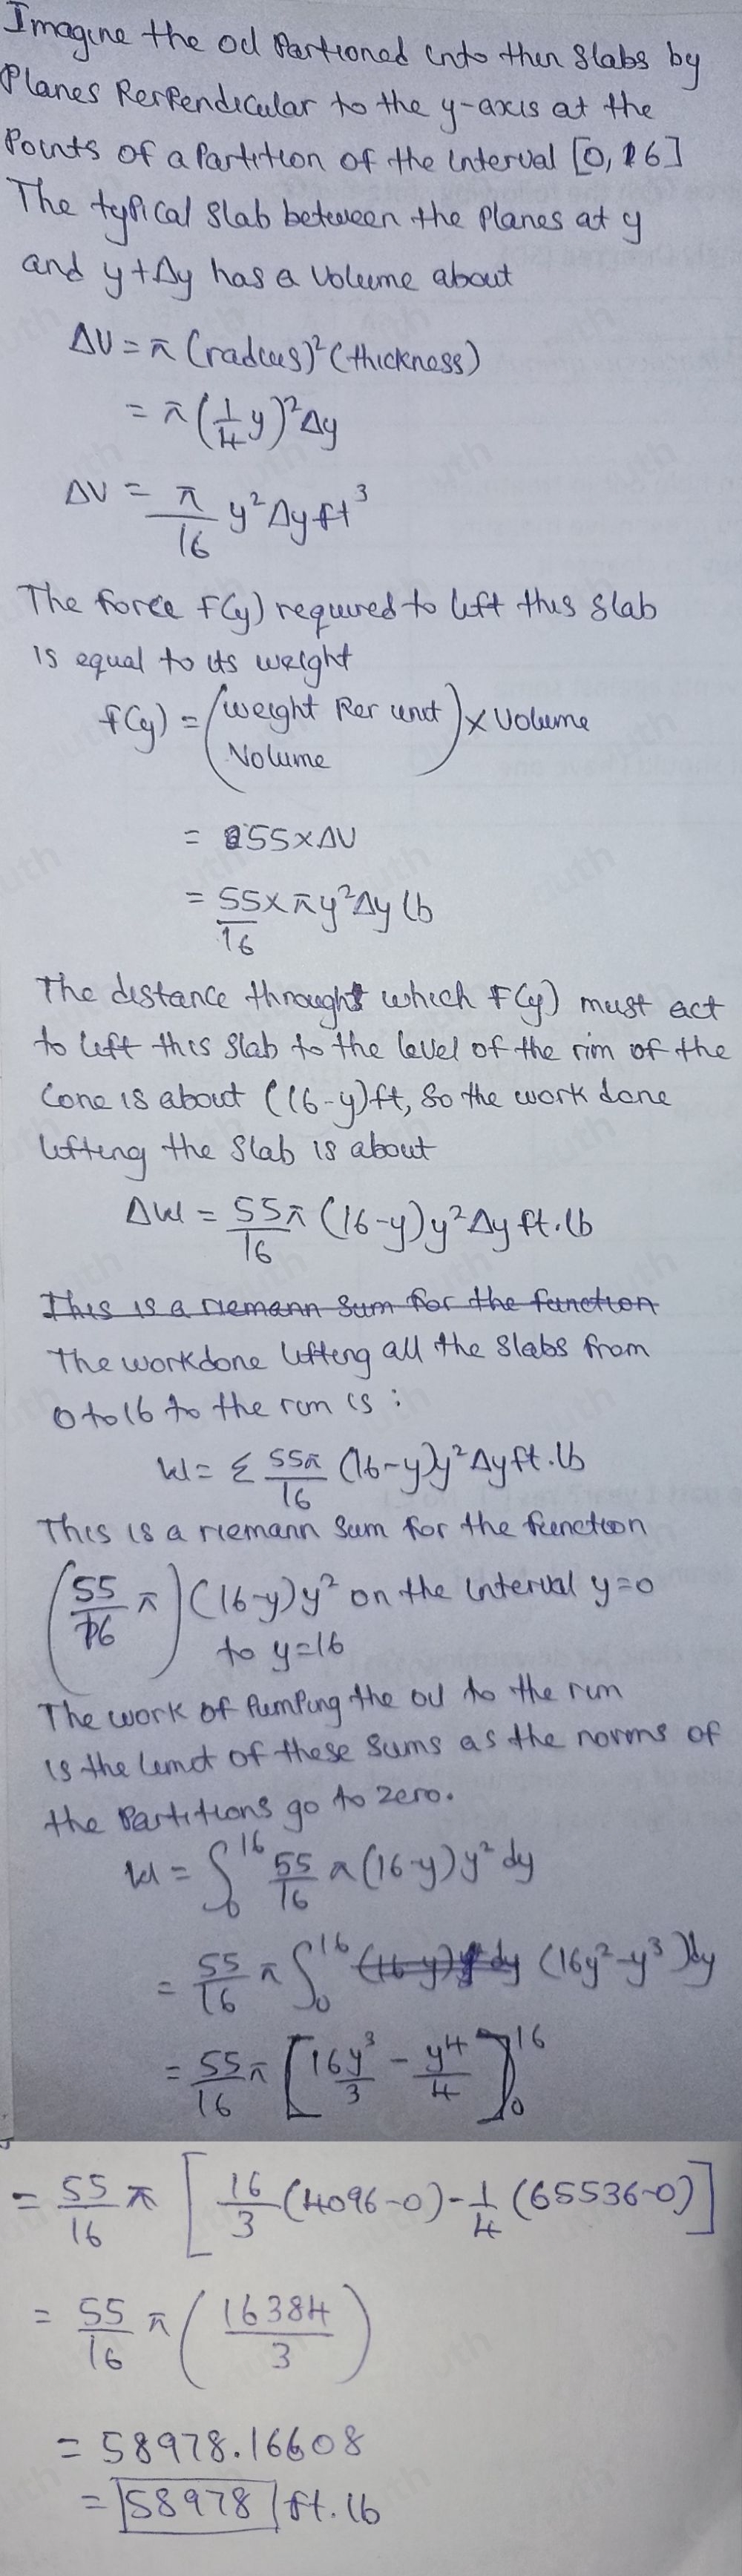 Imagine the oil Partioned into thin slabs by
Planes Perpendicular to the y-axis at the
Points of a Partition of the interval [0, 16]
The typical slab between the planes at y
and y+Δy has a volume about
ΔV = π (radius)² (thickness)
= π(1/4 y)² Δy
ΔV = π/16 y² Δy ft³
The force F(y) required to lift this slab
is equal to its weight
f(y) = (weight Per unit Volume) × Volume
= 55×ΔV
= 55/16 × πy²Δy lb
The distance through which F(y) must act
to lift this slab to the level of the rim of the
Cone is about (16-y)ft, so the work done
lifting the slab is about
ΔW = 55π/16 (16-y)y²Δy ft.lb
This is a riemann sum for the function
The workdone lifting all the slabs from
0 to 16 to the rim is :
W = Σ 55π/16 (16-y)y²Δy ft.lb
This is a riemann sum for the function
(55/16 π) (16-y)y² on the interval y=0
to y=16
The work of Pumping the oil to the rim
is the limit of these sums as the norms of
the Partitions go to zero.
W = ∫₀¹⁶ 55/16 π(16-y)y² dy
= 55/16 π ∫₀¹⁶ (16y²-y³)dy
= 55/16 π [16y³/3 - y⁴/4]₀¹⁶
= 55/16 π [16/3 (4096-0) - 1/4 (65536-0)]
= 55/16 π (16384/3)
= 58978.16608
= 58978 ft.lb